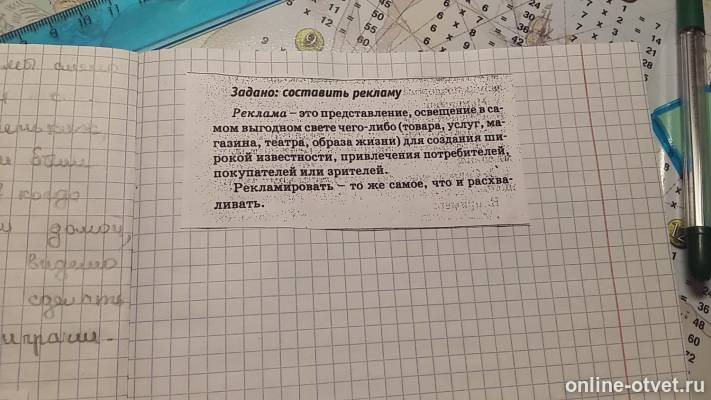 Задано: составить рекламу
Реклама – это представление, освещение в са-
мом выгодном свете чего-либо (товара, услуг, ма-
газина, театра, образа жизни) для создания ши-
рокой известности, привлечения потребителей,
покупателей или зрителей.
Рекламировать – то же самое, что и расхва-
ливать.
были
домой,
видело
сделать
играли.
online-otvet.ru